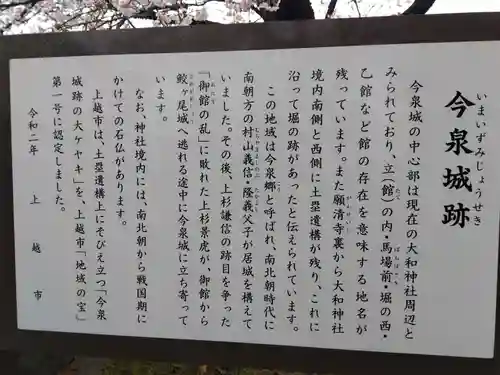 今泉城跡
いまいずみじょうせき
今泉城の中心部は現在の大和神社周辺と
みられており、立(館)の内・馬場前・堀の西・
たて
ばんばさき
乙館など館の存在を意味する地名が
残っています。また願清寺裏から大和神社
境内南側と西側に土塁遺構が残り、これに
沿って堀の跡があったと伝えられています。
この地域は今泉郷と呼ばれ、南北朝時代に
南朝方の村山義信・隆義父子が居城を構えて
いました。その後、上杉謙信の跡目を争った
「御館の乱」に敗れた上杉景虎が御館から
おたて
鮫ヶ尾城へ逃れる途中に今泉城に立ち寄って
います。
なお、神社境内には、南北朝から戦国期に
かけての石仏があります。
上越市は、土塁遺構上にそびえ立つ「今泉
城跡の大ケヤキ」を、上越市「地域の宝」
第一号に認定しました。
令和二年
上越市